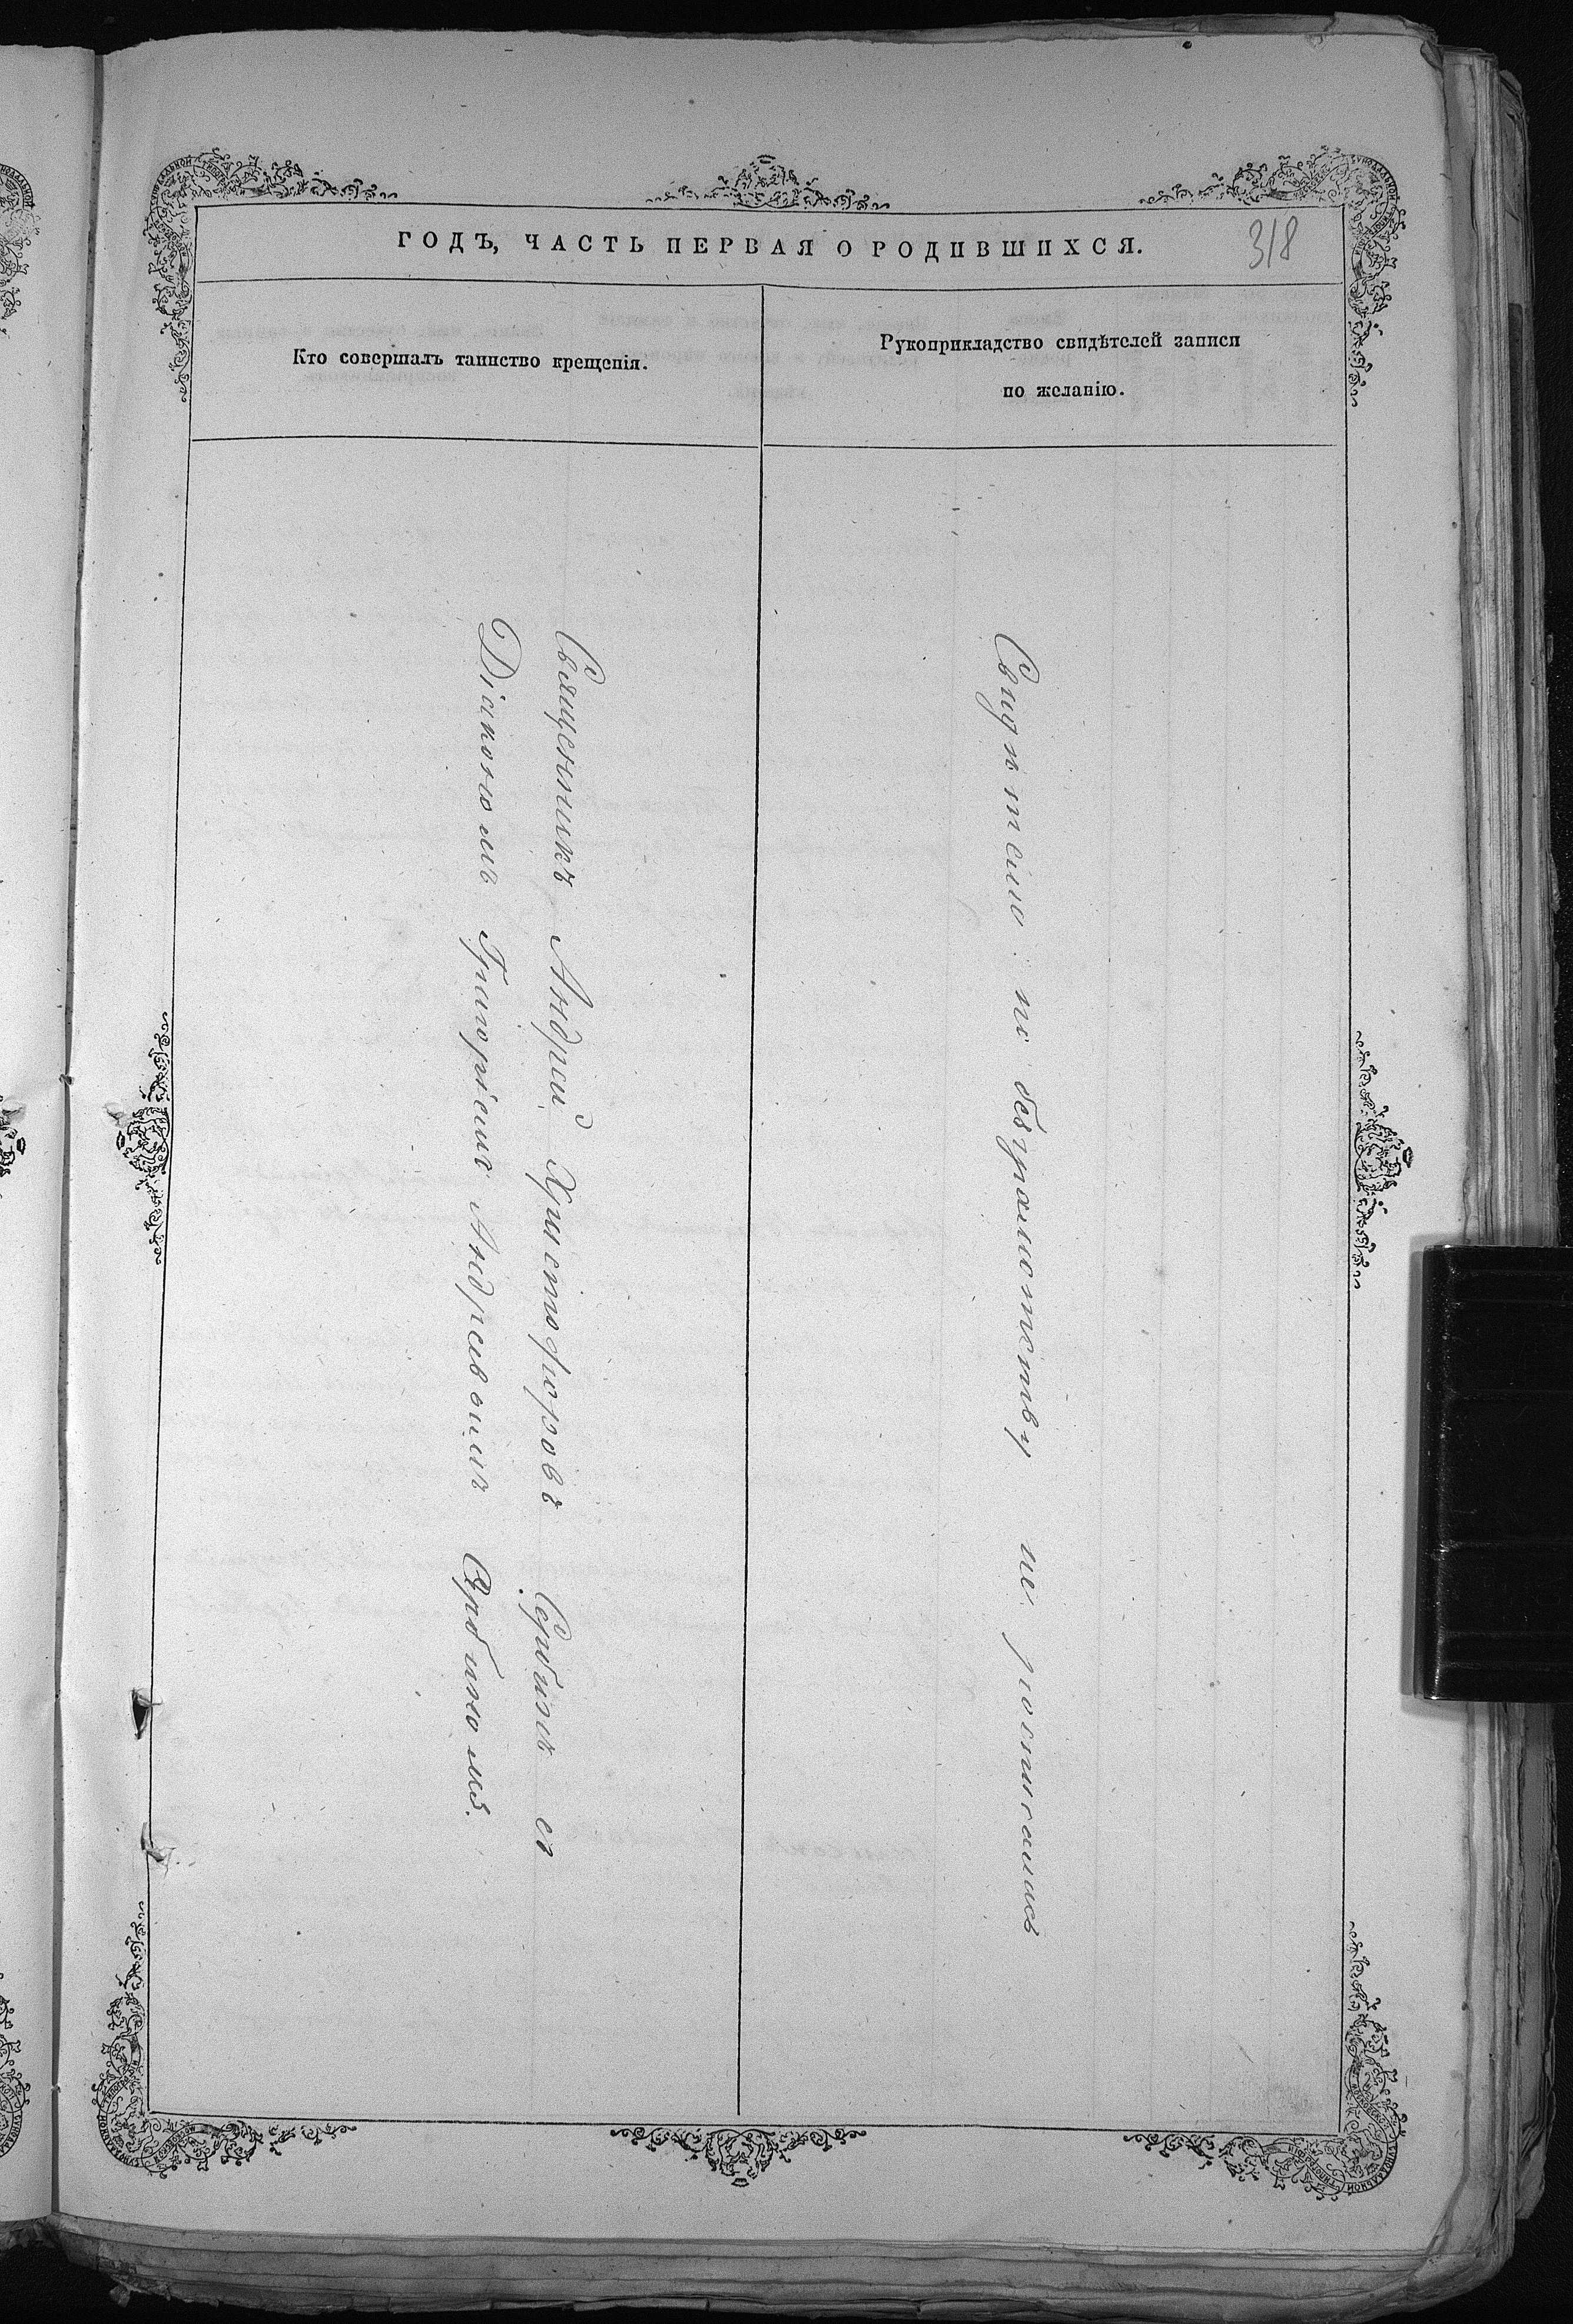 ГОДЪ, ЧАСТЬ ПЕРВАЯ О РОДИВШИХСЯ.
318
Кто совершалъ таинство крещенія.
Рукоприкладство свидѣтелей записи
по желанію.
Священникъ Андрей Христофоровъ Сербинъ съ
Діакономъ Григоріемъ Андреевымъ Сербиномъ.
Свидѣтели по безграмотству не росписались